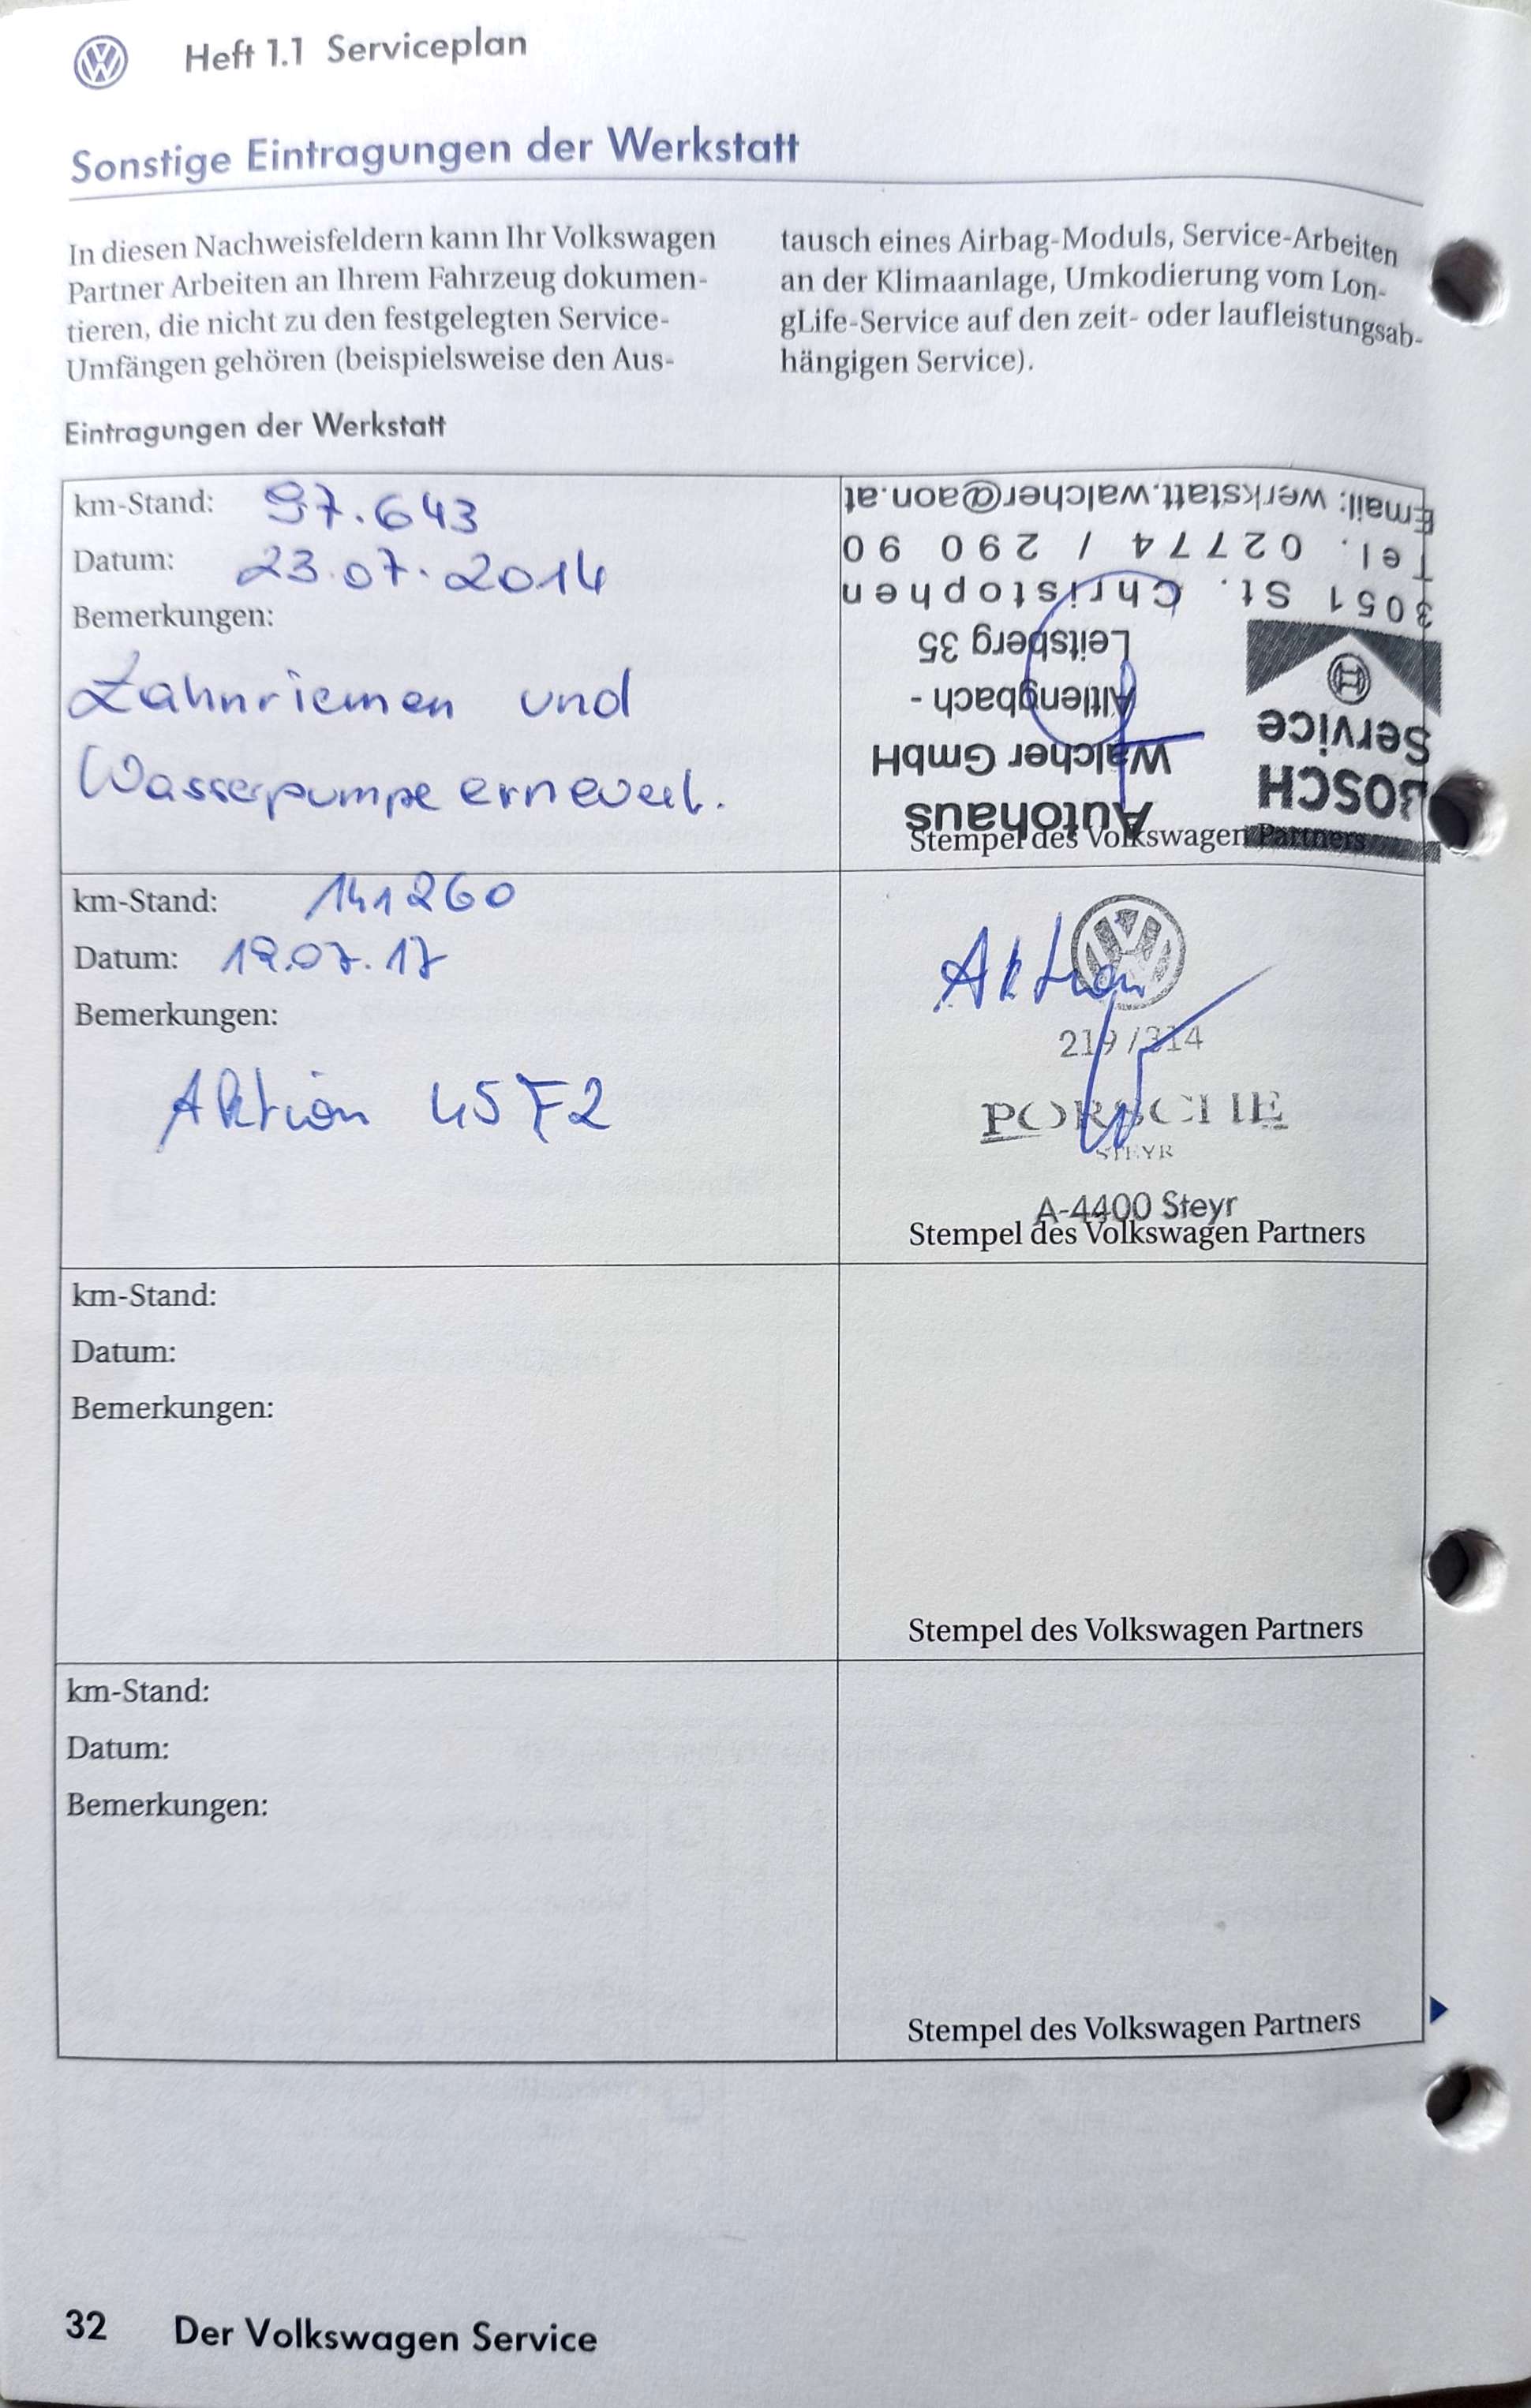 Heft 1.1 Serviceplan
Sonstige Eintragungen der Werkstatt
In diesen Nachweisfeldern kann Ihr Volkswagen
Partner Arbeiten an Ihrem Fahrzeug dokumen-
tieren, die nicht zu den festgelegten Service-
Umfängen gehören (beispielsweise den Aus-
tausch eines Airbag-Moduls, Service-Arbeiten
an der Klimaanlage, Umkodierung vom Lon-
gLife-Service auf den zeit- oder laufleistungsab-
hängigen Service).
Eintragungen der Werkstatt
km-Stand: 97.643
Datum: 23.07.2014
Bemerkungen:
Zahnriemen und
Wasserpumpe erneuert.
BOSCH
Service
Autohaus
Walcher GmbH
Altlengbach -
Leitsberg 35
3051 St. Christophen
Tel. 02774 / 290 90
Email: werkstatt.walcher@aon.at
Stempel des Volkswagen Partners
km-Stand: 141260
Datum: 19.07.17
Bemerkungen:
Aktion 45F2
Aktion
219/314
PORSCHE
STEYR
A-4400 Steyr
Stempel des Volkswagen Partners
km-Stand:
Datum:
Bemerkungen:
Stempel des Volkswagen Partners
km-Stand:
Datum:
Bemerkungen:
Stempel des Volkswagen Partners
32 Der Volkswagen Service